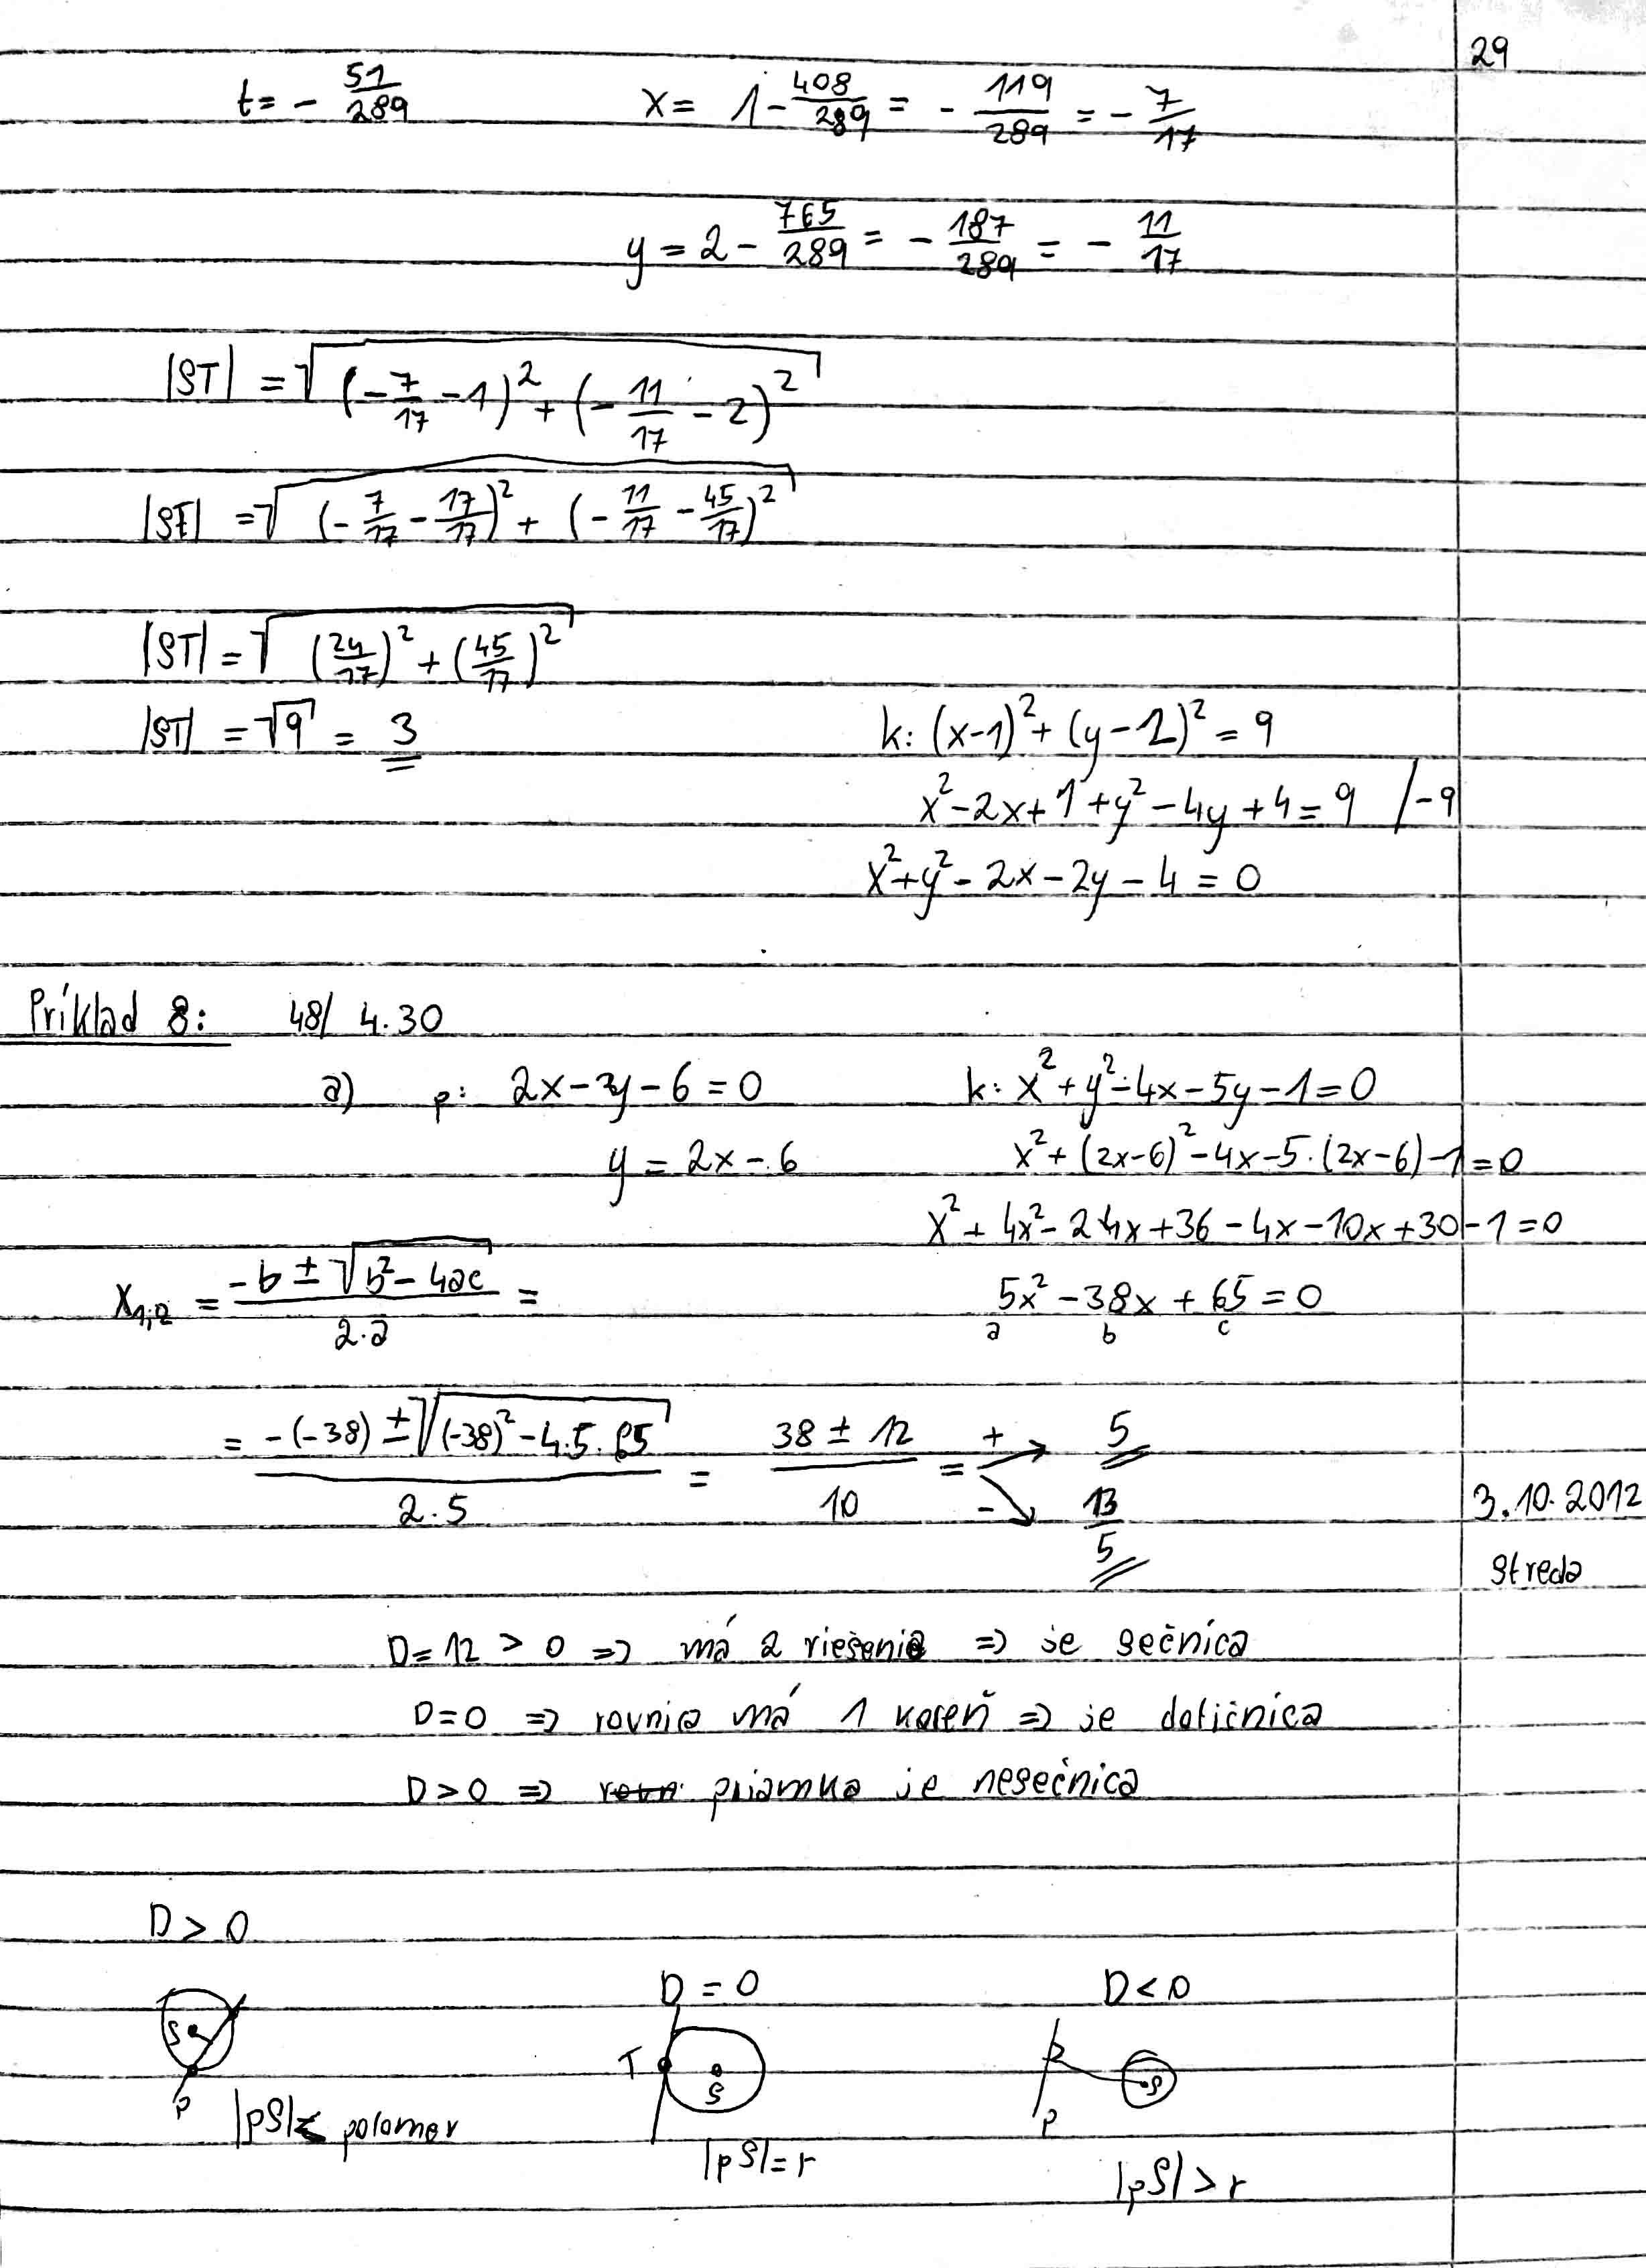 29
t = - 51/289    x = 1 - 408/289 = - 119/289 = - 7/17
y = 2 - 765/289 = - 187/289 = - 11/17
|ST| = √((-7/17 - 1)² + (-11/17 - 2)²)
|ST| = √((-7/17 - 17/17)² + (-11/17 - 45/17)²)
|ST| = √((24/17)² + (45/17)²)
|ST| = √9 = 3    k: (x-1)² + (y-2)² = 9
x² - 2x + 1 + y² - 4y + 4 = 9 /-9
x² + y² - 2x - 2y - 4 = 0
Príklad 8: 48/ 4.30
a) p: 2x - y - 6 = 0    k: x² + y² - 4x - 5y - 1 = 0
y = 2x - 6    x² + (2x-6)² - 4x - 5.(2x-6) - 1 = 0
x² + 4x² - 24x + 36 - 4x - 10x + 30 - 1 = 0
x1,2 = (-b ± √(b² - 4ac))/(2.a) =    5x² - 38x + 65 = 0
a b c
= (-(-38) ± √((-38)² - 4.5.65))/(2.5) = (38 ± 12)/10 = + 5
- 13/5
3.10.2012
streda
D = 12 > 0 => má 2 riešenie => je sečnica
D = 0 => rovnica má 1 koreň => je dotičnica
D > 0 => priamka je nesečnica
D > 0
D = 0    D < 0
S p    T S    p S
|pS| < polomer    |pS| = r    |pS| > r